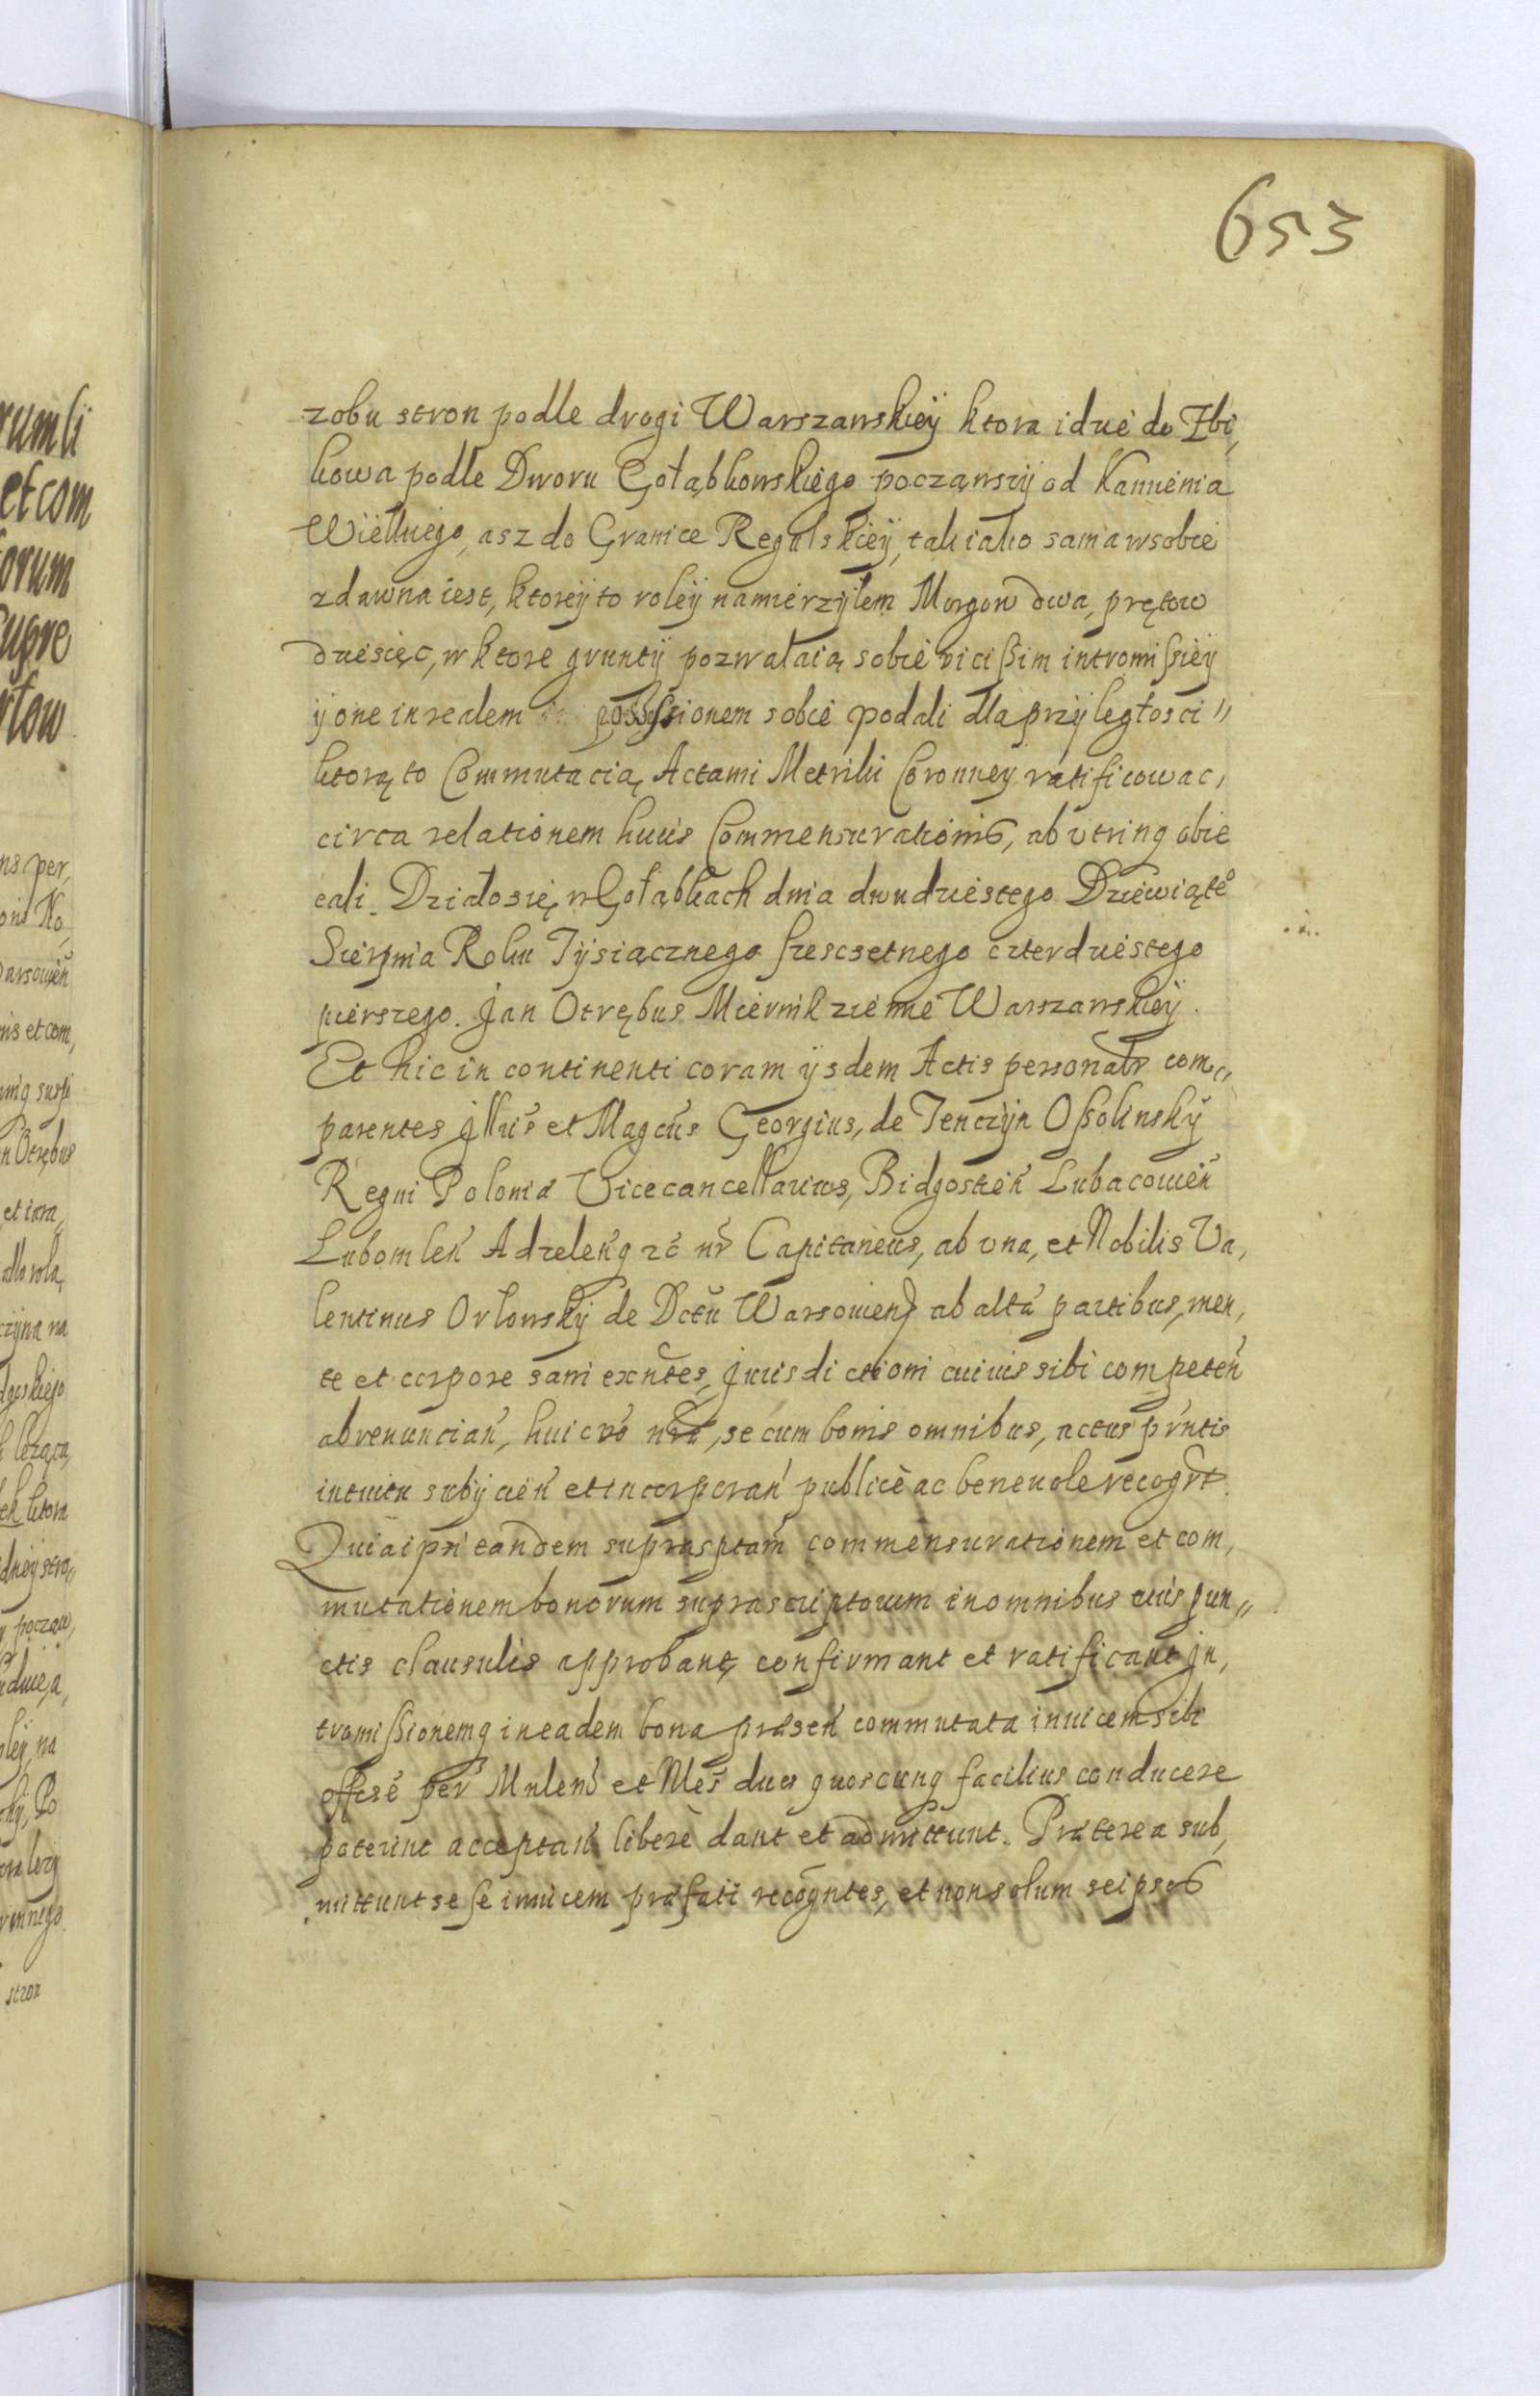 653
zobu stron podle drogi Warszawskiey ktora idzie do Zbi,
kowa podle Dworu Gołąbkowskiego począwszy od Kamienia
Wielkiego, asz do Granice Regulskiey, tak iako sama wsobie
zdawna iest, ktorey to roley namierzyłem Morgow dwa, prętow
dziesięc, w ktore grunty pozwalaią sobie vicissim intromissiey
y one in realem possessionem sobie podali dla przyległosci
ktorą to Commutacią Actami Metriki Coronney ratificowac,
circa relationem huius Commensurationis, ab vtrinq obie
cali. Działo się w Gołąbkach dnia dwudziestego Dziewiąteº
Sierpnia Roku Tysiącznego szescsetnego czterdziestego
pierszego. Jan Otrębus Miernik ziemie Warszawskiey.
Et hic in continenti coram ijsdem Actis personalr com,,
parentes Jllris et Magcus Georgius, de Tenczyn Ossolinsky
Regni Polonia Vicecancellarius, Bidgostien Lubacouien
Lubomlen Adzelenq zc nr Capitaneus, ab vna, et Nobilis Va,
lentinus Orlowsky de Dctu Warsouien ab altā partibus, men,
te et corpore sani exntes, Jurisdictioni cuiuis sibi competen
abrenuncian, huic vo nrā, se cum bonis omnibus, actus prntis
intuitu subijcien et incorporan publice ac beneuole recogrt.
Quia ipsi eandem suprasptam commensurationem et com,
mutationem bonorum suprascriptorum in omnibus eius pun,,
ctis clausulis approbant, confirmant et ratificant Jn,
tromissionemq in eadem bona præsen commutata inuicem sibi
offise per Mnlem et Nles duos quoscunq facilius conducere
poterint acceptan libere dant et admittunt. Præterea sub,
mittunt sese inuicem præfati recogntes, et non solum seipsos